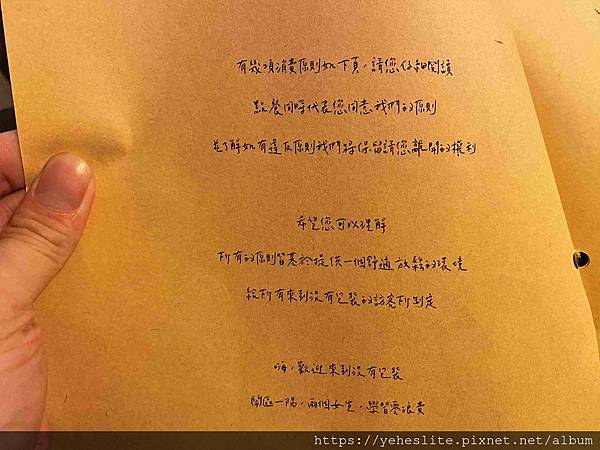 有幾項消費原則如下頁，請您仔細閱讀
點餐同時代表您同意我們的原則
並了解如有違反原則我們將保留請您離開的權利
希望您可以理解
所有的原則皆基於提供一個舒適放鬆的環境
給所有來到沒有包裝的訪客所制定
嗨，歡迎來到沒有包裝
鬧區一隅，兩個女生，學習零浪費
https://yeheslite.pixnet.net/album